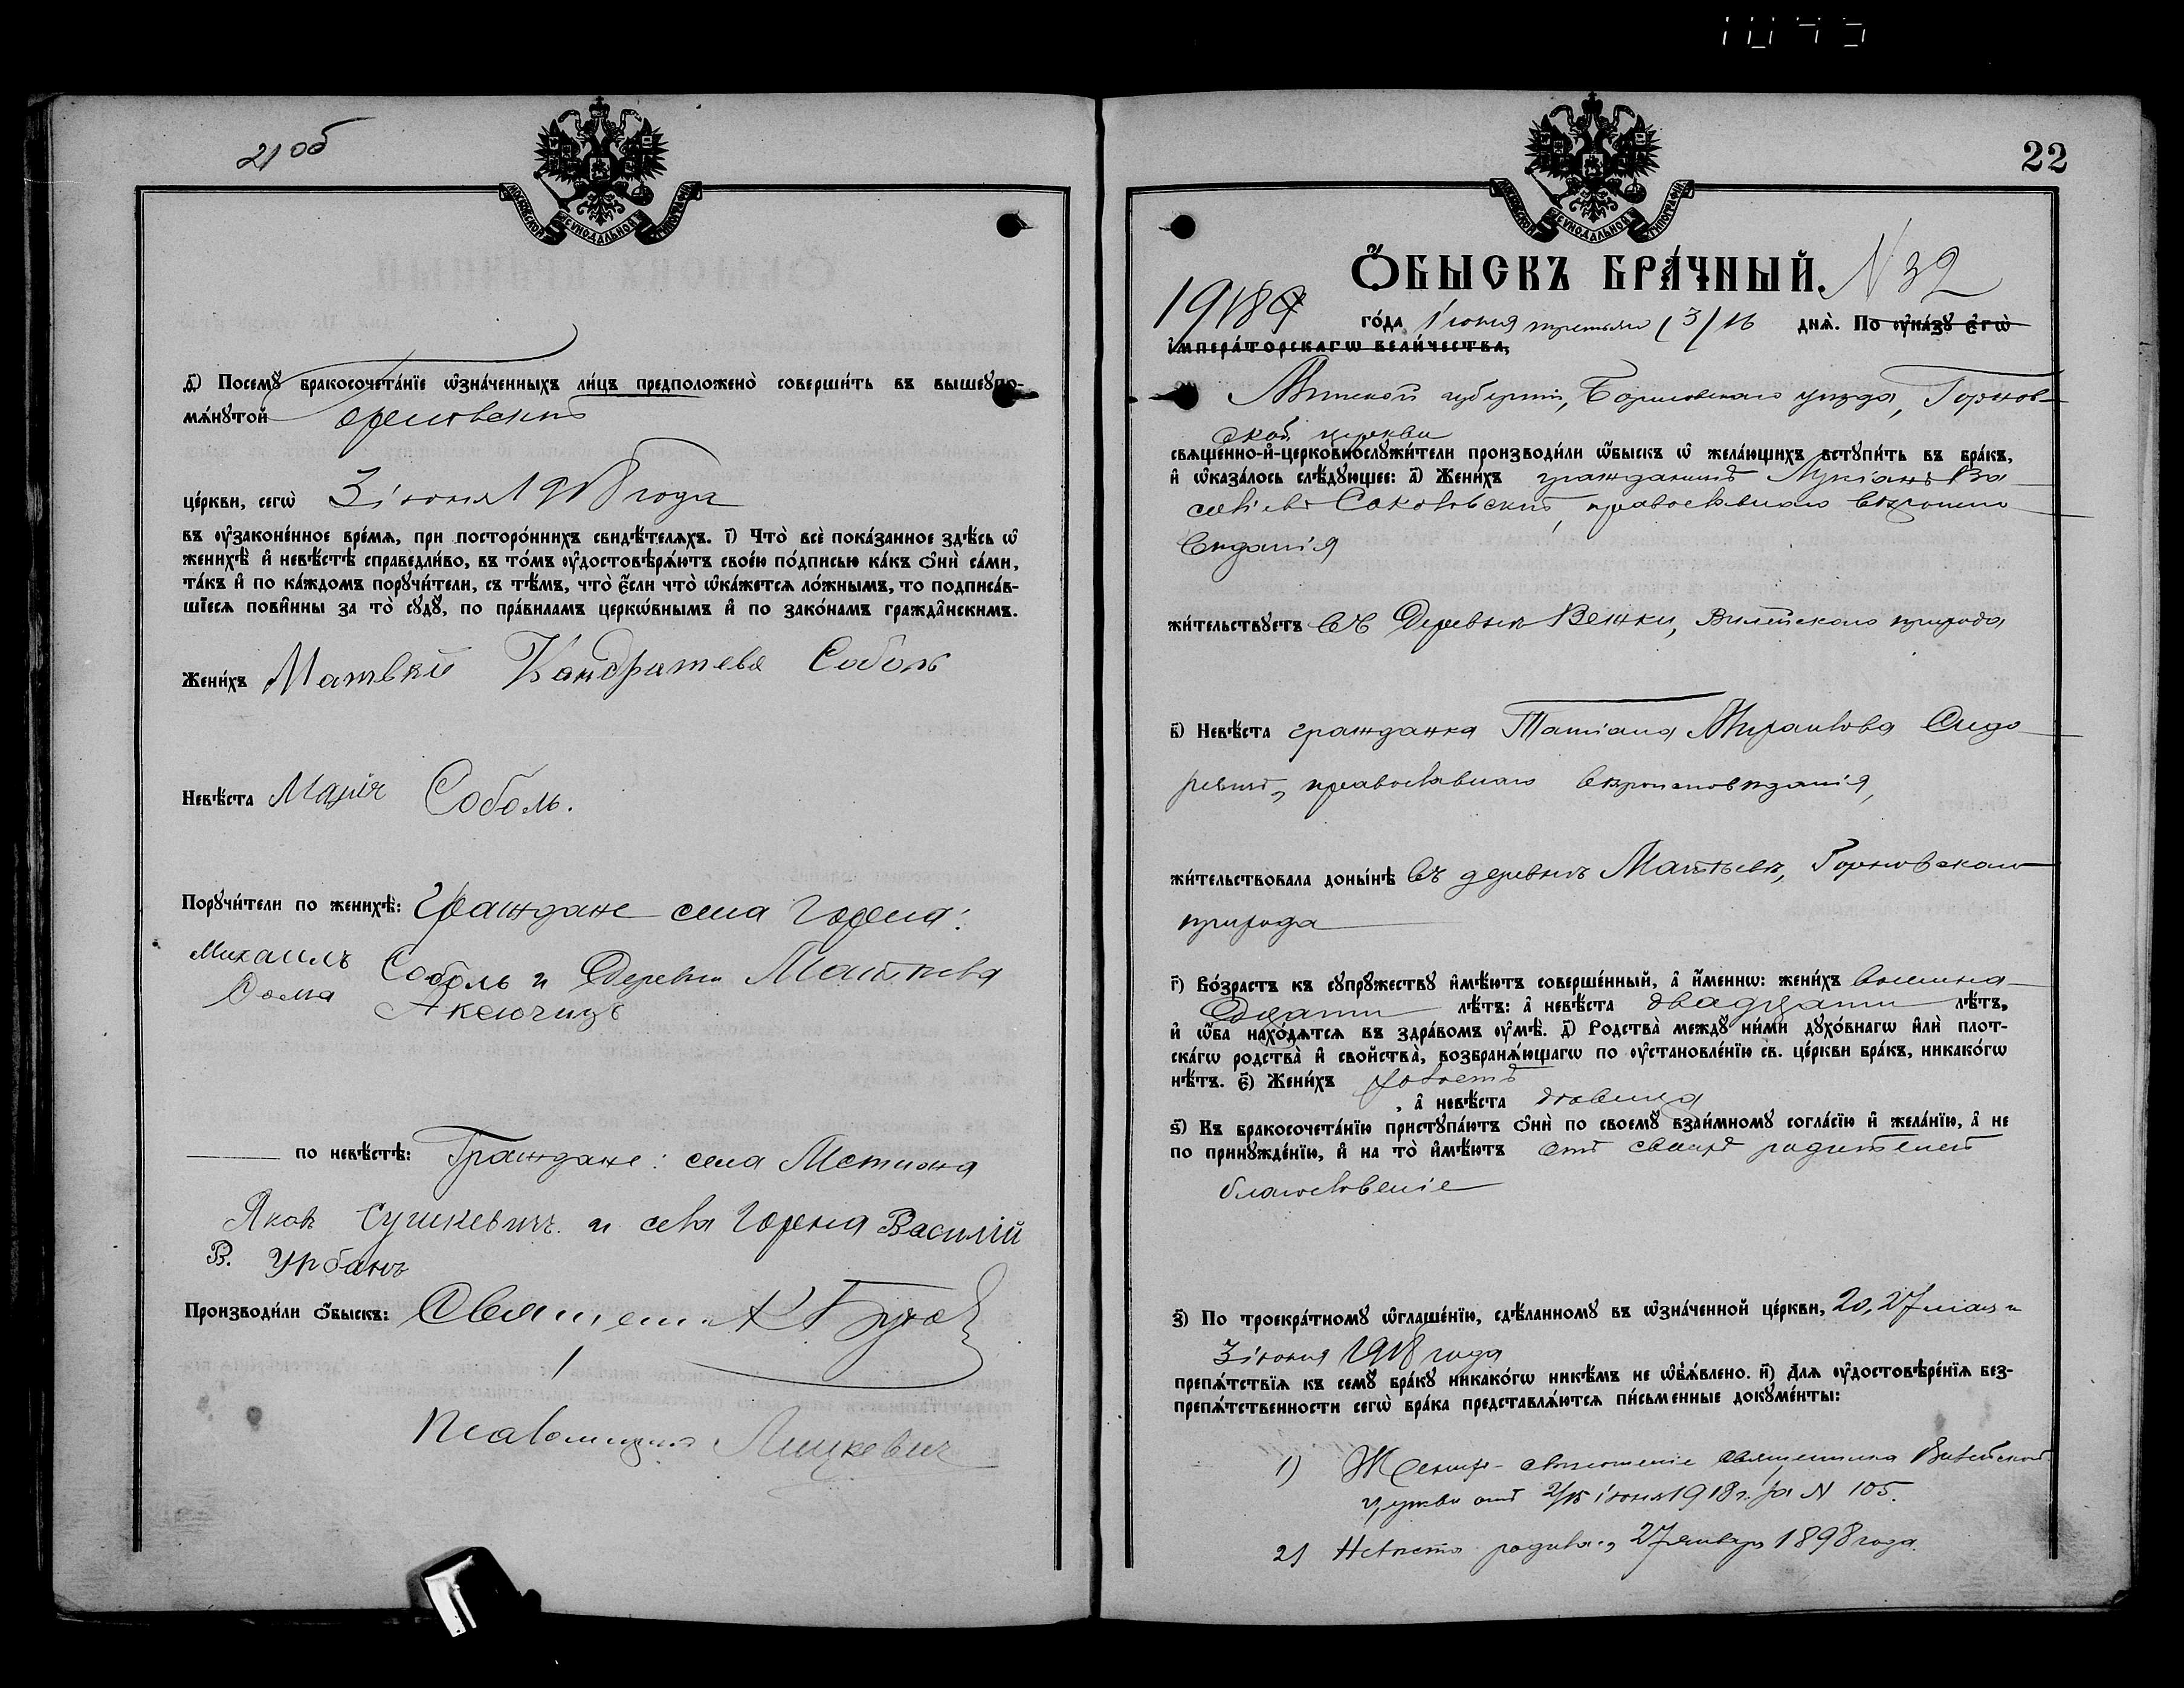 1045
21 об
МОСКОВСКОЙ СѴНОДАЛЬНОЙ ТИПОГРАФІИ
ѳ҃) Посемꙋ̀ бракосочета́нїе ѡ҆зна́ченныхъ ли́цъ предположено̀ соверши́ть въ вышеупо-
мѧ́нутой
це́ркви, сегѡ̀ 3 іюня 1918 года
въ ᲂу҆законе́нное вре́мѧ, при посторо́ннихъ свидѣ́телѧхъ. і҃) Что̀ всѐ пока́занное здѣ́сь ѡ҆
женихѣ̀ и҆ невѣ́стѣ справедли́во, въ то́мъ ᲂу҆достовѣрѧ́ютъ свое́ю по́дписью ка́къ ѻ҆нѝ са́ми,
та́къ и҆ по ка́ждомъ поручи́тели, съ тѣ́мъ, что̀ є҆́сли что̀ ѡ҆ка́жетсѧ ло́жнымъ, то подписа́в-
шїесѧ пови́нны за то̀ сꙋдꙋ̀, по пра́виламъ церкѡ́внымъ и҆ по зако́намъ гражда́нскимъ.
Жени́хъ Матвѣй Кондратьевъ Соболь
Невѣ́ста Марія Соболь.
Порꙋчи́тели по женихѣ̀: Граждане села Горена:
Михаилъ Соболь и Деревни
Ѳома Аксючицъ
по невѣ́стѣ: Граждане: села Мстижа
Яковъ Сушкевичъ и села Горена Василій
В. Урбанъ
Производи́ли ѻ҆́быскъ: Священ.
Псаломщикъ Лицкевичъ
МОСКОВСКОЙ СѴНОДАЛЬНОЙ ТИПОГРАФІИ
22
Ѻ҆́БЫСКЪ БРА́ЧНЫЙ. N 32
1918 го́да Іюня третьяго (3/16 днѧ̀. По ᲂу҆ка́зꙋ є҆гѡ̀
і҆мпера́торскагѡ вели́чества,
Минской губерніи, Борисовскаго уѣзда, Горнов-
ской церкви
свѧще́нно-и҆-церковнослꙋжи́тели производи́ли ѡ҆́быскъ ѡ҆ жела́ющихъ вступи́ть въ бра́къ,
и҆ ѡ҆каза́лось слѣ́дꙋющее: а҃) Жени́хъ гражданинъ Лукіанъ Ва
силіевъ Соколовскій, православнаго вѣроиспо
вѣданія
жи́тельствꙋетъ въ Деревнѣ Вежки, Вилейскаго прихода
в҃) Невѣ́ста гражданка Татіана Сидо
ревичъ, православнаго вѣроисповѣданія,
жи́тельствовала доны́нѣ въ деревнѣ Горновскаго
прихода
г҃) Во́зрастъ къ сꙋпрꙋ́жествꙋ и҆мѣ́ютъ соверше́нный, а҆ и҆́меннѡ: жени́хъ восемна-
дцати лѣ́тъ: а҆ невѣ́ста двадцати лѣ́тъ,
и҆ ѡ҆́ба нахо́дѧтсѧ въ здра́вомъ ᲂу҆мѣ̀. д҃) Родства̀ междꙋ̀ ни́ми дꙋхо́внагѡ и҆лѝ плот-
ска́гѡ родства̀ и҆ сво́йства, возбранѧ́ющагѡ по ᲂу҆становле́нїю св. це́ркви бра́къ, никако́гѡ
нѣ́тъ. є҃) Жени́хъ холостъ
, а҆ невѣ́ста дѣвица
ѕ҃) Къ бракосочета́нїю пристꙋпа́ютъ ѻ҆нѝ по своемꙋ̀ взаи́мномꙋ согла́сїю и҆ жела́нїю, а҆ не
по принꙋжде́нїю, и҆ на то̀ и҆мѣ́ютъ отъ своихъ родителей
благословеніе
з҃) По троекра́тномꙋ ѡ҆глаше́нїю, сдѣ́ланномꙋ въ ѡ҆зна́ченной це́ркви, 20, 27 мая и
3 іюня 1918 года
препѧ́тствїѧ къ семꙋ̀ бра́кꙋ никако́гѡ никѣ́мъ не ѡ҆б̾ѧ́влено. и҃) Для ᲂу҆достовѣре́нїѧ без-
препѧ́тственности сегѡ̀ бра́ка представлѧ́ютсѧ пи́сьменные докꙋме́нты:
1) Жених - священника Вилейской
церкви отъ 2/15 іюня 1918 г. за N 105.
2) Невѣста родилась 27 января 1898 года.